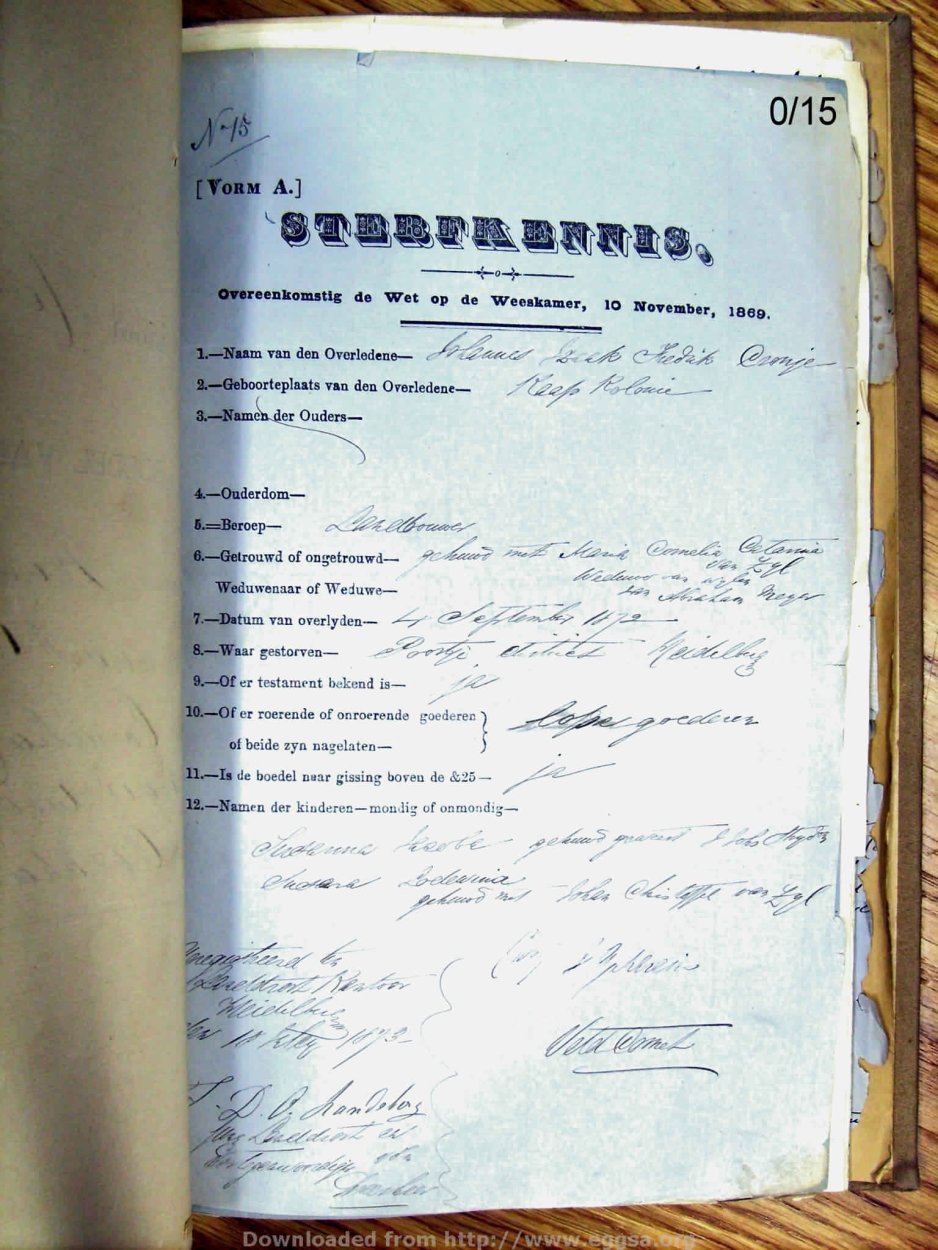 0/15
No 15
[VORM A.]
STERFKENNIS.
Overeenkomstig de Wet op de Weeskamer, 10 November, 1869.
1.—Naam van den Overledene— Johannes Izaak Fredrik Cronje
2.—Geboorteplaats van den Overledene— Kaap Kolonie
3.—Namen der Ouders—
4.—Ouderdom—
5.=Beroep— Landbouwer
6.—Getrouwd of ongetrouwd— gehuwd met Maria Cornelia Catarina
van Zyl
Weduwe van wylen
Weduwenaar of Weduwe— van Abraham Meyer
7.—Datum van overlyden— 4 September 1872
8.—Waar gestorven— Poortje district Heidelberg
9.—Of er testament bekend is— ja
10.—Of er roerende of onroerende goederen
of beide zyn nagelaten— losse goederen
11.—Is de boedel naar gissing boven de &25— ja
12.—Namen der kinderen—mondig of onmondig—
Susanna gehuwd geweest
Susara Lodewina
gehuwd met Johan Christoffel van Zyl
Geregistreerd ten
Landdrost Kantoor
Heidelberg
den 10 1873
Veld Cornet
Landdrost en
Downloaded from http://www.eggsa.org